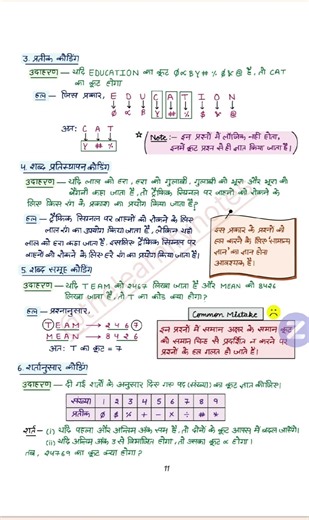 3. प्रतीक कोडिंग
उदाहरण – यदि EDUCATION का कूट ØαBY#%$★@ है, तो CAT
का कूट होगा
हल – जिस प्रकार, E D U C A T I O N
अतः C A T
Y # %
Note :- इन प्रश्नों में लॉजिक नहीं होता,
इनमें कूट प्रश्न से ही ज्ञात किया जाता है।
4. शब्द प्रतिस्थापन कोडिंग
उदाहरण – यदि लाल को हरा, हरा को गुलाबी, गुलाबी को भूरा और भूरा को
बैंगनी कहा जाता है, तो ट्रैफिक सिग्नल पर वाहनों को रोकने के
लिए किस रंग के प्रकाश का प्रयोग किया जाता है?
हल – ट्रैफिक सिग्नल पर वाहनों को रोकने के लिए
लाल रंग का उपयोग किया जाता है, लेकिन यहाँ
लाल को हरा कहा जाता है. इसलिए ट्रैफिक सिग्नल पर
वाहनों को रोकने के लिए हरे रंग का प्रयोग किया जाता है।
इस प्रकार के प्रश्नों को
हल करने के लिए सामान्य
ज्ञान का ज्ञान होना
आवश्यक है।
5. शब्द समूह कोडिंग
उदाहरण – यदि TEAM को 2467 लिखा जाता है और MEAN को 8426
लिखा जाता है, तो T का कोड क्या होगा?
हल – प्रश्नानुसार,
TEAM → 2467
MEAN → 8426
अतः T का कूट = 7
Common Mistake
इन प्रश्नों में समान अक्षर के समान कूट
को समान चिह्न से प्रदर्शित न करने पर
प्रश्नों के हल गलत हो जाते हैं।
6. शर्तानुसार कोडिंग
उदाहरण – दी गई शर्तों के अनुसार दिए गए पद (संख्या) का कूट ज्ञात कीजिए।
संख्या 1 2 3 4 5 6 7 8 9
प्रतीक
शर्त – (i) यदि पहला और अन्तिम अंक सम है, तो दोनों के कूट आपस में बदल जायेंगे।
(ii) यदि अन्तिम अंक 3 से विभाजित होगा, तो उसका कूट α होगा।
तब, 24769 का कूट क्या होगा?
11